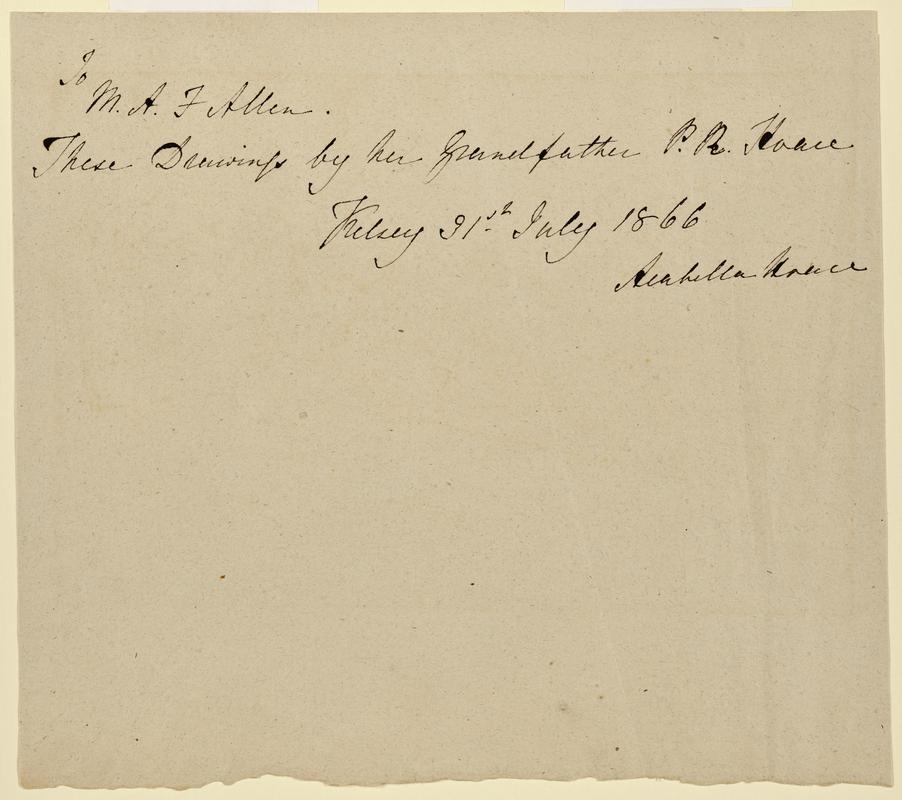 To
M. A. F Allen.
These Drawings by her Grandfather P. R. Hoare
Kelsey 31st July 1866
Arabella Hoare